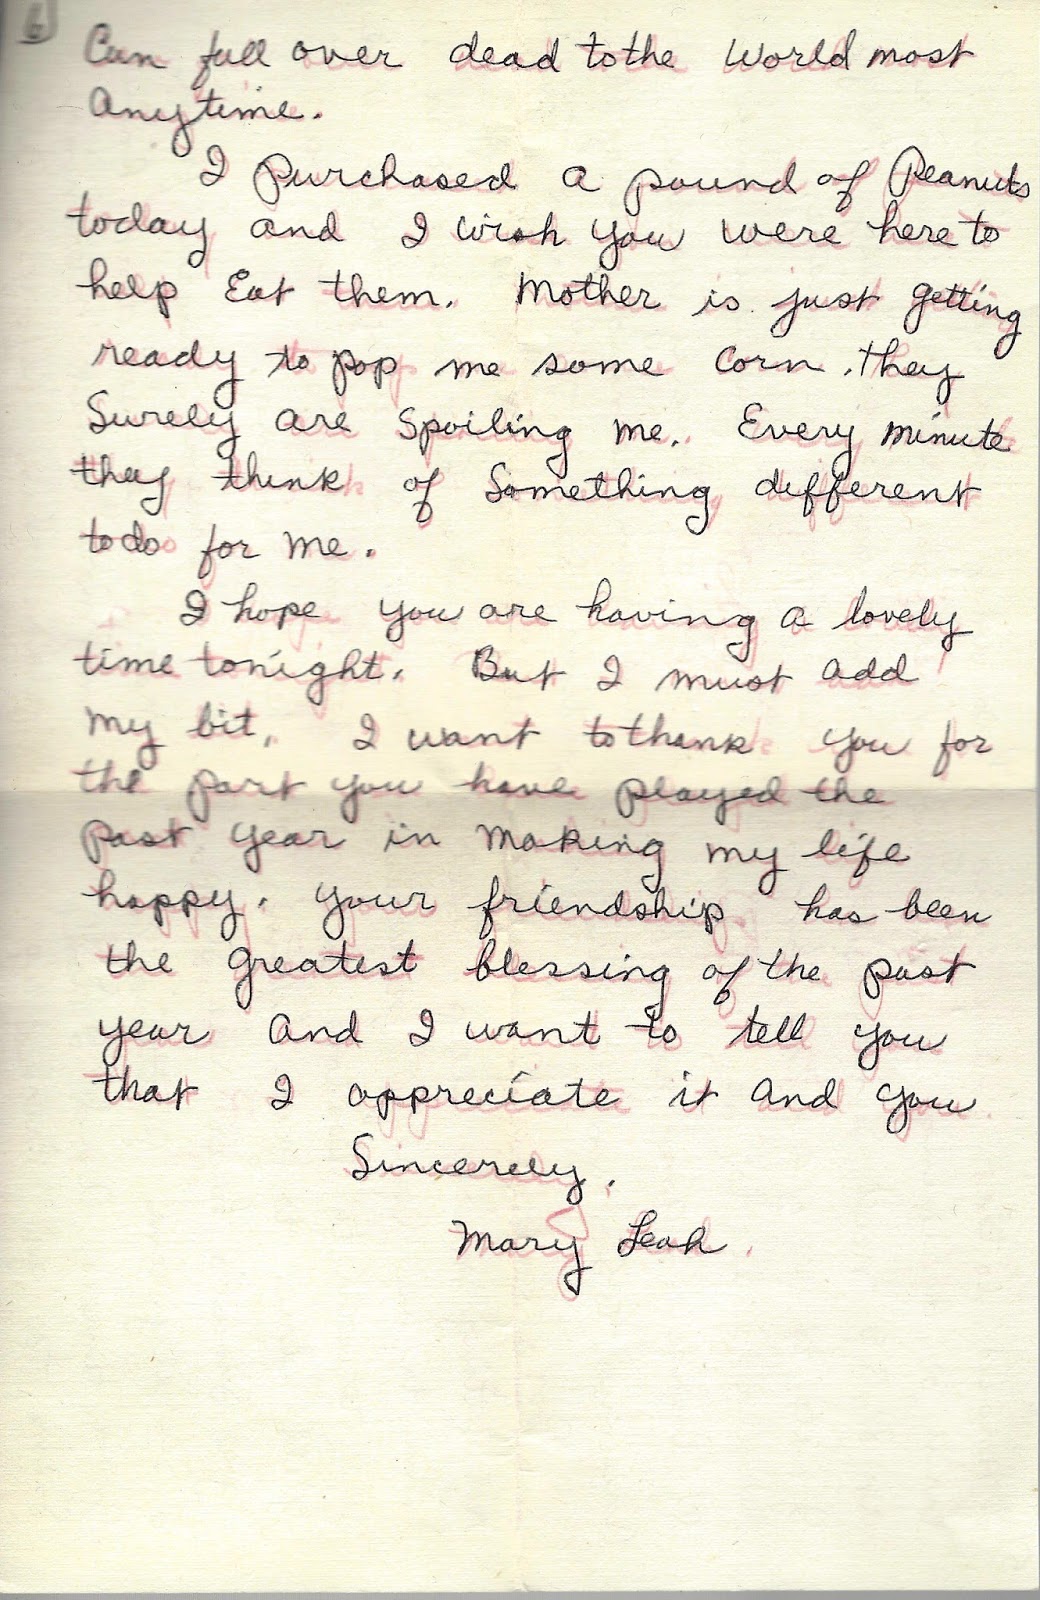 6
Can fall over dead to the World most
Anytime.
I purchased a pound of Peanuts
today and I wish you were here to
help Eat them. Mother is just getting
ready to pop me some Corn. They
Surely are Spoiling me. Every minute
they think of Something different
to do for me.
I hope you are having a lovely
time tonight. But I must add
my bit. I want to thank you for
the part you have played the
past year in making my life
happy. Your friendship has been
the Greatest blessing of the past
year and I want to tell you
that I appreciate it and you
Sincerely,
Mary Leah.